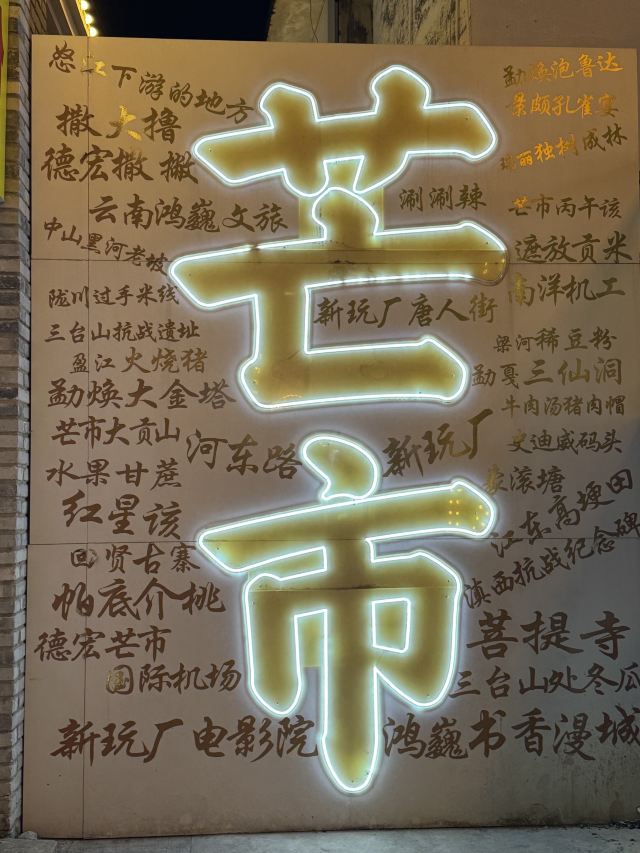 怒江下游的地方
撒大撸
德宏撒撇
云南鸿巍文旅
中山黑河老坡
陇川过手米线
三台山抗战遗址
盈江火烧猪
勐焕大金塔
芒市大贡山
水果甘蔗
红星该
回贤古寨
帕底介桃
德宏芒市
国际机场
新玩厂电影院
芒市
涮涮辣
新玩厂唐人街
河东路
新玩厂
勐焕泡鲁达
景颇孔雀宴
瑞丽独树成林
芒市丙午该
遮放贡米
南洋机工
梁河稀豆粉
勐戛三仙洞
牛肉汤猪肉帽
史迪威码头
滚塘
江东高埂田
滇西抗战纪念碑
菩提寺
三台山处冬瓜
鸿巍书香漫城